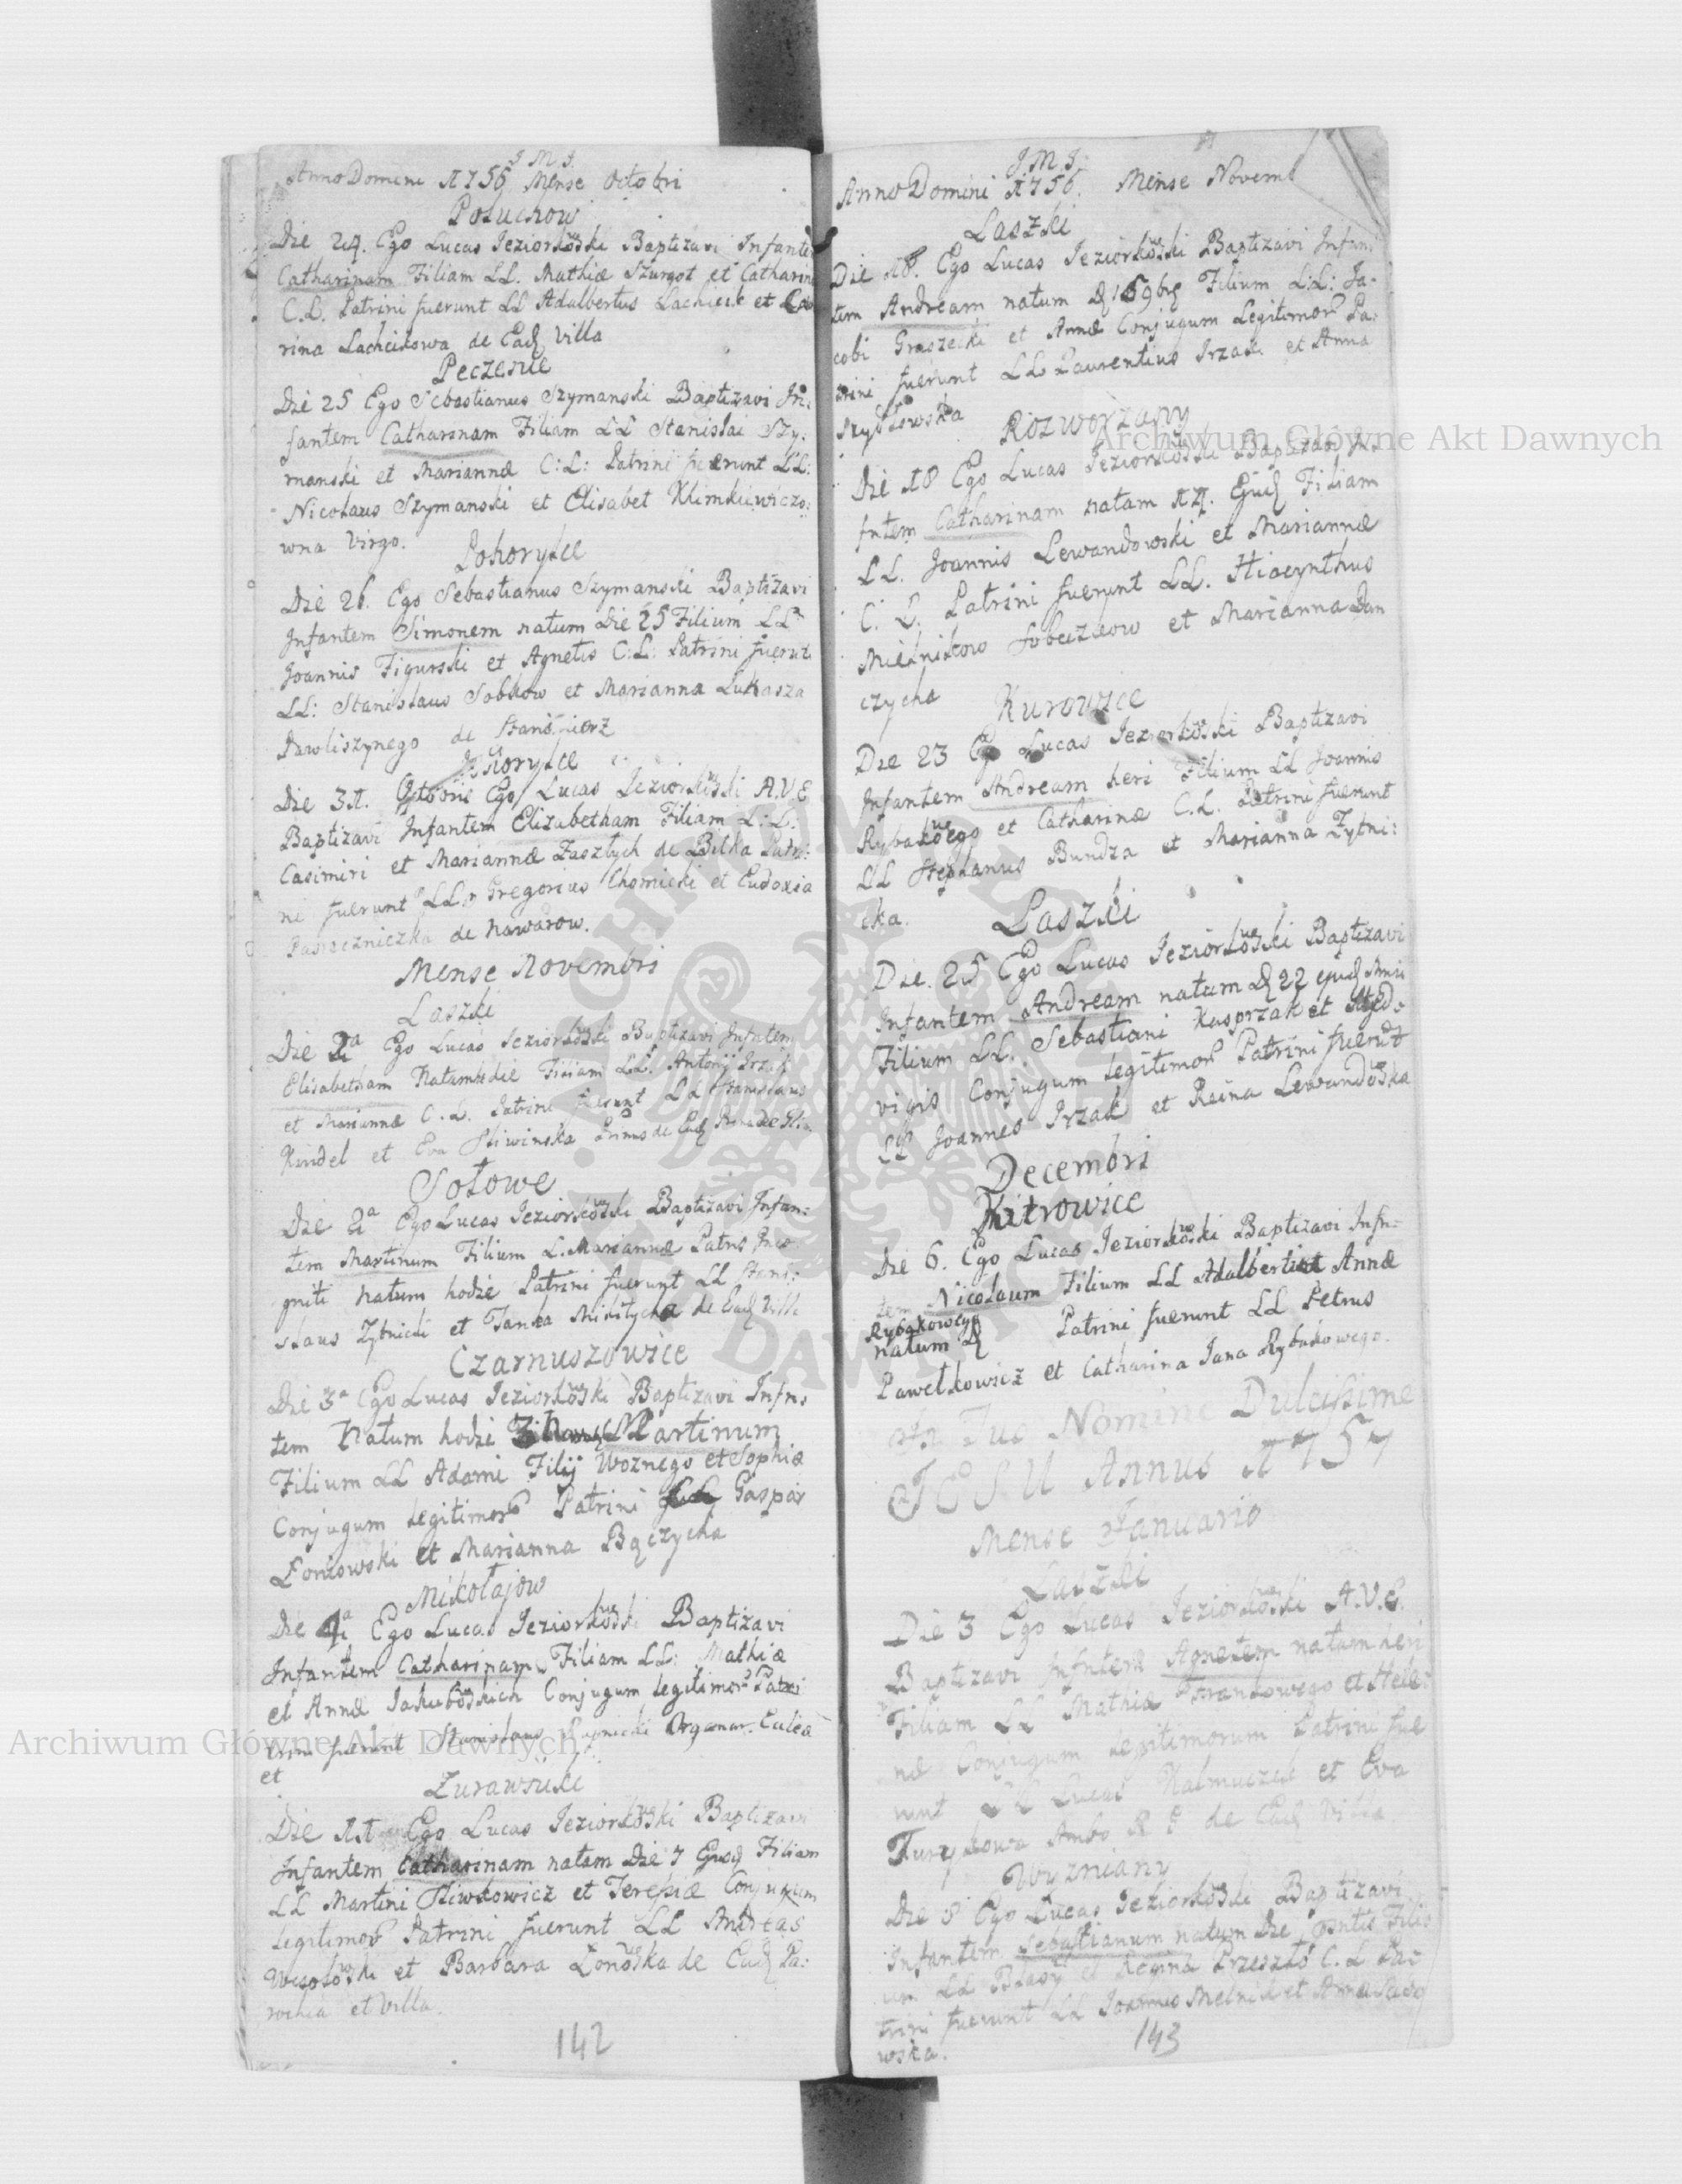 J M J.
Anno Domini 1756 Mense Octobri
Poluchow
Die 24. Ego Lucas Jeziorkowski Baptizavi Infantem
Catharinam Filiam LL. Mathiæ Szurgot et Catharinæ
C.L. Patrini fuerunt LL Adalbertus Lachcik et
rina Lachcikowa de Eadq Villa
Peczenie
Die 25 Ego Sebastianus Szymanski Baptizavi In:
fantem Catharinam Filiam LL Stanislai Szy:
manski et Mariannæ C:L: Patrini fuerunt LL:
Nicolaus Szymanski et Elisabet Klimkiewiczo:
wna Virgo.
Pohorylce
Die 26. Ego Sebastianus Szymanski Baptizavi
Infantem Simonem natum Die 25 Filium LL
Joannis Figurski et Agnetis C:L: Patrini fuerut
LL: Stanislaus Sobkow et Marianna Lukasza
Pawliszynego de
Pohorylce
Die 31. Octobris Ego Lucas Jeziorkowski A.V.E
Baptizavi Infantem Elizabetham Filiam L:L:
Casimiri et Mariannæ Zaszłych de Bilka Patri:
ni fuerunt LL Gregorius Chomicki et Eudoxia
Pasieczniczka de Nawarow.
Mense Novembri
Laszki
Die 2a Ego Lucas Jeziorkowski Baptizavi Infntem
Elisabetham Natam hodie Filiam LL. Antonij Irzak
et Mariannæ C.L. Patrini fuerunt LL Stanislaus
Kindel et Eva Sliwinska Primus de Eadq
Sołowe
Die 2a Ego Lucas Jeziorkowski Baptizavi Infan:
tem Martinum Filium L. Mariannæ Patris Inco
gniti natum hodie Patrini fuerunt LL Stani:
slaus Zytnicki et Tanka Mikitycha de Eadq Villa
Czarnuszowice
Die 3a Ego Lucas Jeziorkowski Baptizavi Infn:
tem Natum hodie Martinum
Filium LL Adami Filij Woznego et Sophiæ
Conjugum legitimor Patrini Gaspar
Łonkowski et Marianna Bączycha
Mikołajow
Die 4a Ego Lucas Jeziorkowski Baptizavi
Infantem Catharinam Filiam LL: Mathiæ
et Annæ Jakubowskich Conjugum legitimor Patri
fuerunt Stanislaus Organar. Ecclæ
et
Zurawniki
Die 11 Ego Lucas Jeziorkowski Baptizavi
Infantem Catharinam natam Die 7 Ejusdq Filiam
LL Martini Sliwkowicz et Teresiæ Conjugum
legitimor Patrini fuerunt LL Andreas
Wesołowski et Barbara Zonowska de Eadq Pa:
rochia et Villa.
142
J M J.
Anno Domini 1756. Mense Novemb
Laszki
Die 18. Ego Lucas Jeziorkowski Baptizavi Infan
tem Andream natum Filium L:L: Ja-
cobi Graszecki et Annæ Conjugum Legitimor Pa:
trini fuerunt LL Laurentius Irzak et Anna
Szydłowska
Rozworzany
Die 18 Ego Lucas Jeziorkowski Baptizavi In:
fntem Catharinam natam 17. Ejusdq Filiam
LL. Joannis Lewandowski et Mariannæ
C. L. Patrini fuerunt LL. Hiacynthus
Mielnikow Sobczukow et Marianna Dan
czycha
Kurowice
Die 23 Ego Lucas Jeziorkowski Baptizavi
Infantem Andream heri Filium LL Joannis
Rybakowego et Catharinæ C.L. Patrini fuerunt
LL Stephanus Bundza et Marianna Zytni:
cka.
Laszki
Die 25 Ego Lucas Jeziorkowski Baptizavi
Infantem Andream natum D 22 ejusdq Anni
Filium LL. Sebastiani Kasprzak et Hed:
vigis Conjugum legitimor Patrini fuerut
LL Joannes Irzak et Reina Lewandowska
Decembri
Kitrowice
Die 6. Ego Lucas Jeziorkowski Baptizavi Infn:
tem Nicolaum Filium LL Adalberti et Annæ
Rybakowego
natum D Patrini fuerunt LL Petrus
Pawełkowicz et Catharina Jana Rybakowego.
In Tuo Nomine Dulcissime
JESU Annus 1757
Mense Januario
Laszki
Die 3 Ego Lucas Jeziorkowski A.V.E.
Baptizavi Infntem Agnetem natam heri
Filiam LL Mathiæ et Hele:
næ Conjugum legitimorum Patrini fue
runt LL Lucas et Eva
Ambo de Eadq Villa
Wyzniany
Die 8 Ego Lucas Jeziorkowski Baptizavi
Infantem Sebastianum natum Die Filiu
um LL Blasij et Regina Przeszło C.L Pa:
trini fuerunt LL Joannes Melnik et Anna
wska.
143
Archiwum Główne Akt Dawnych
Archiwum Główne Akt Dawnych